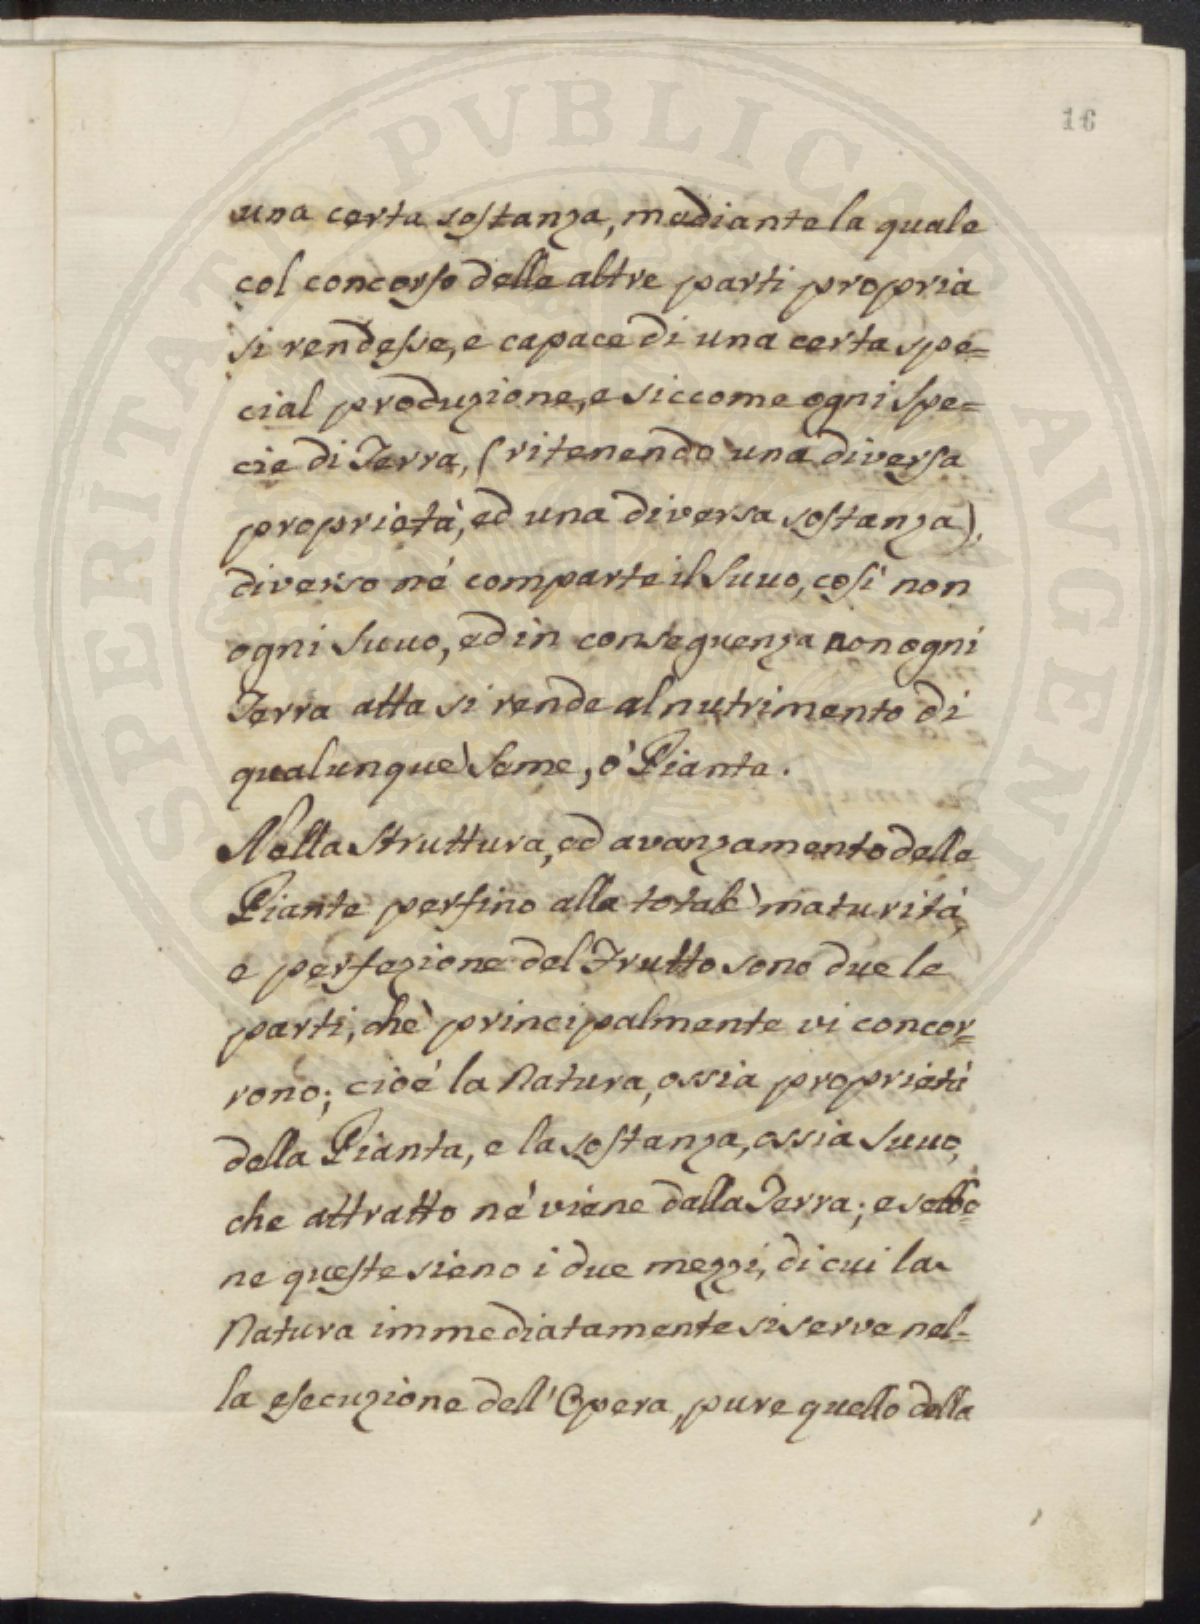 16
una certa sostanza, mediante la quale
col concorso delle altre parti propria
si rendesse, e capace di una certa spe=
cial produzione, e siccome ogni Spe=
cie di Terra, (ritenendo una diversa
proprietà, ed una diversa sostanza),
diverso né comparte il Suuo, così non
ogni Suuo, ed in conseguenza non ogni
Terra atta si rende al nutrimento di
qualunquè Seme, ò Pianta.
Nella Struttura, ed avanzamento delle
Piante perfino alla totale maturità,
e perfezione del Frutto sono due le
parti, chè principalmente vi concor=
rono; cioé la Natura, ossia proprietà
della Pianta, e la sostanza, ossia Suuo,
che attratto né viene dalla Terra; e sebbe=
ne queste sieno i due mezzi, di cui la
Natura immediatamente si serve nel=
la esecuzione dell'Opera, pure quello della
SPERITATI PVBLICAE AVGENDAE